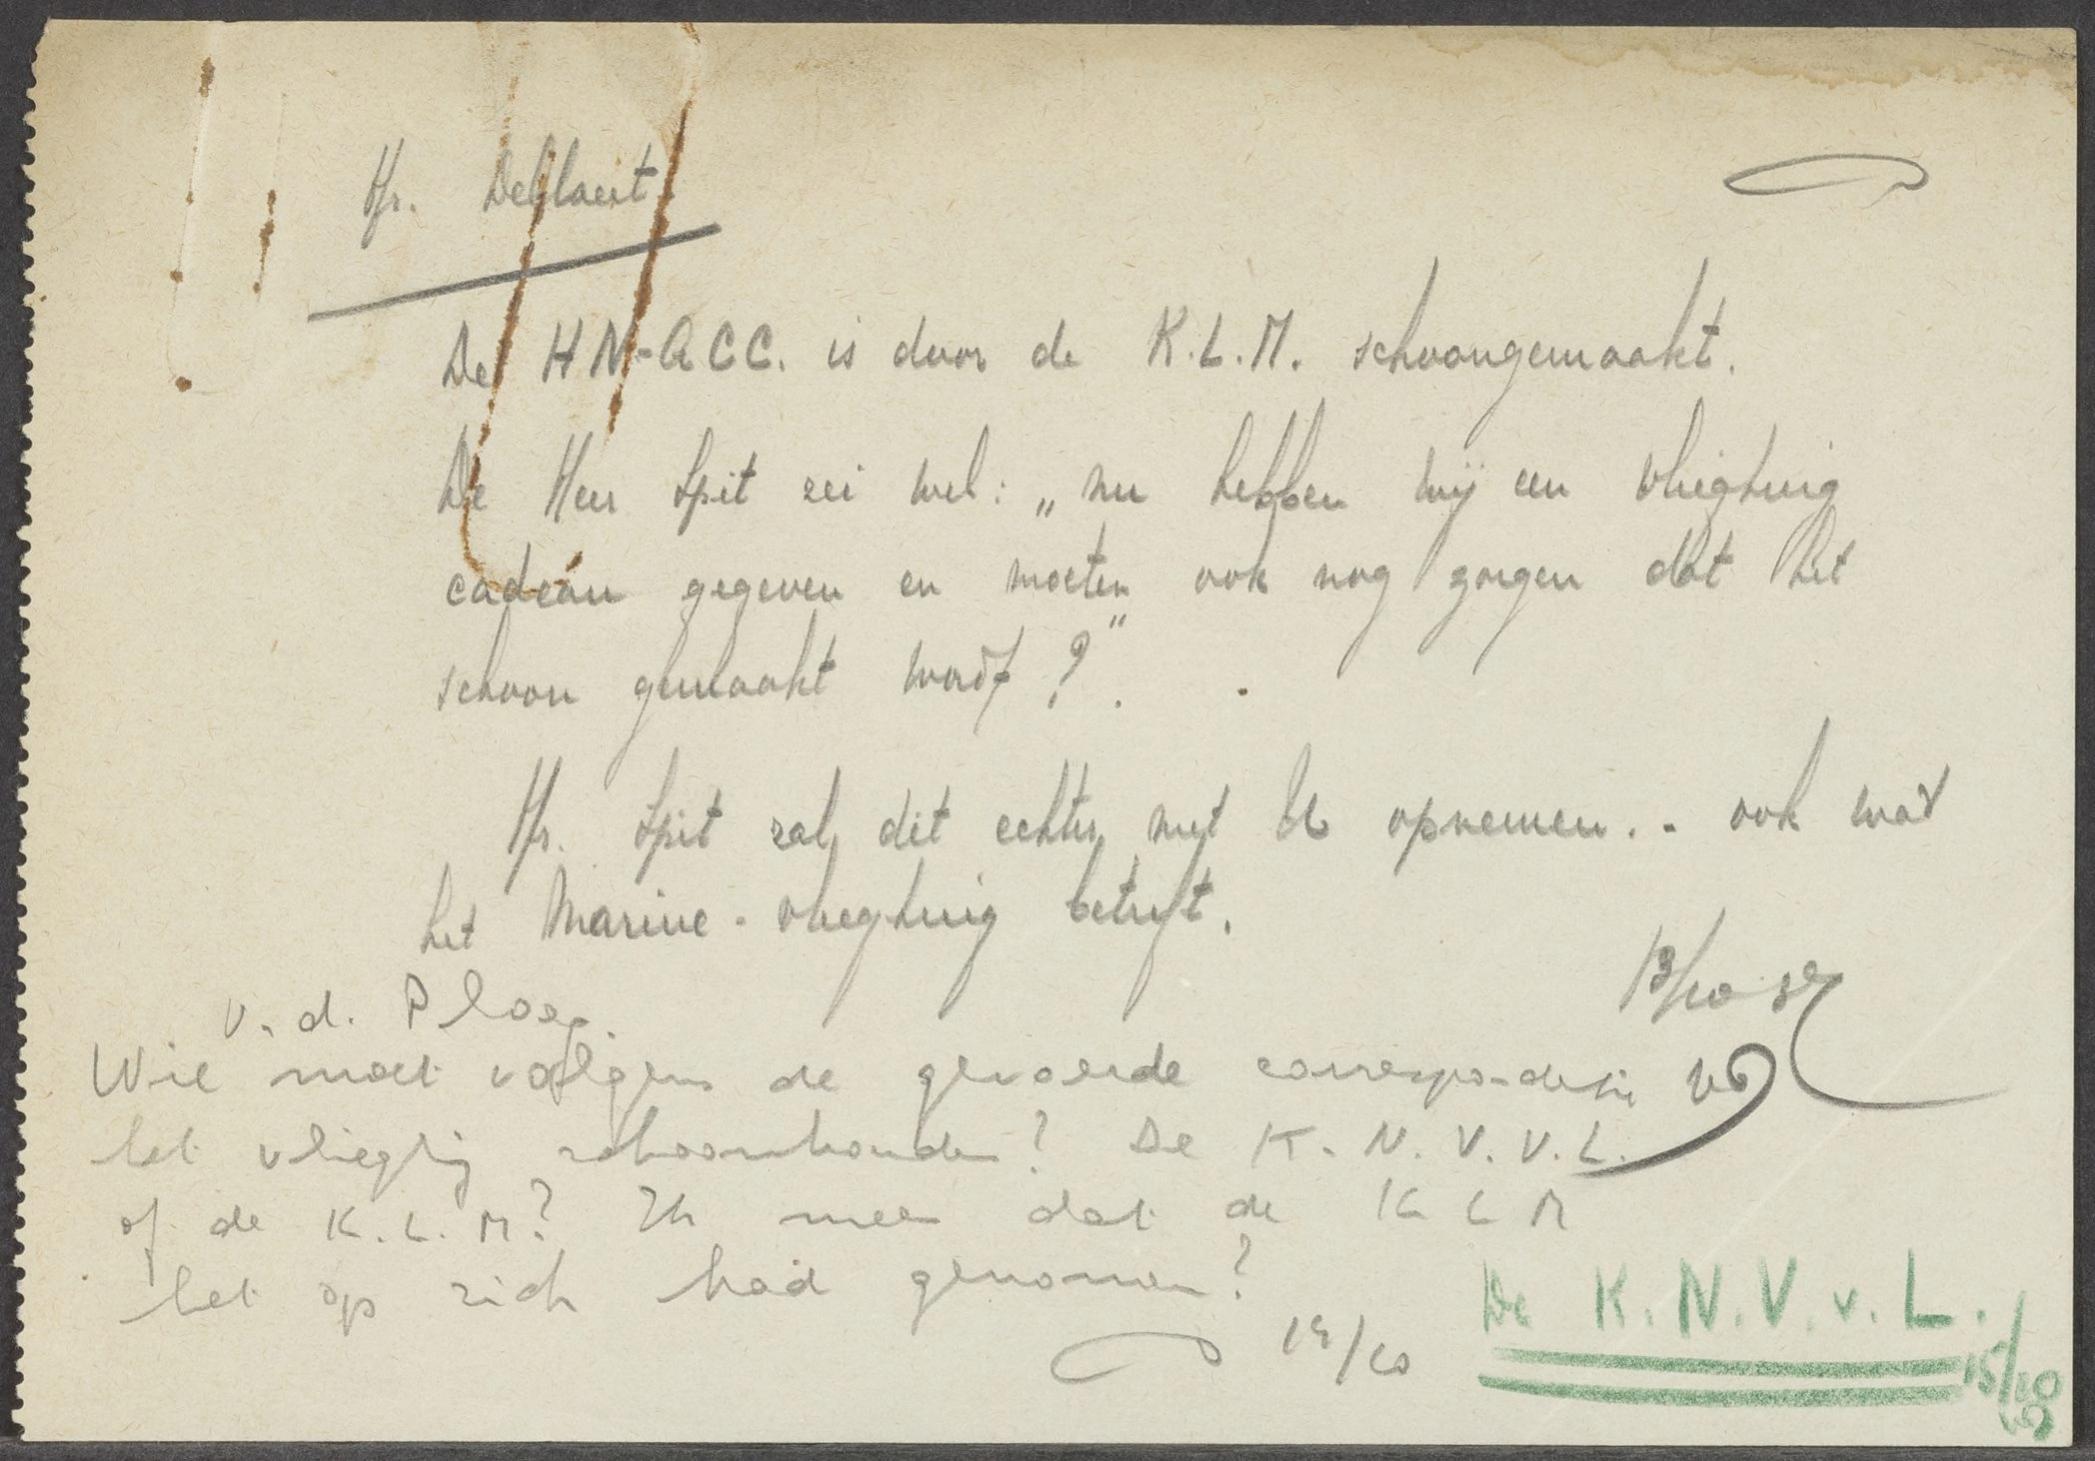 Hr. Dellaert
De HN-ACC. is door de K.L.M. schoongemaakt.
De Heer Spit zei wel: „nu hebben wij een vliegtuig
cadeau gegeven en moeten ook nog zorgen dat het
schoon gemaakt wordt?".
Hr. Spit zal dit echter met U opnemen.. ook wat
het Marine-vliegtuig betreft.
13/10
v.d. Ploeg.
Wie moet volgens de gevoerde correspondentie
het vliegtuig schoonhouden? De K.N.V.V.L.
of de K.L.M? Ik meen dat de KLM
het op zich had genomen?
14/10
De K.N.V.v.L.
15/10